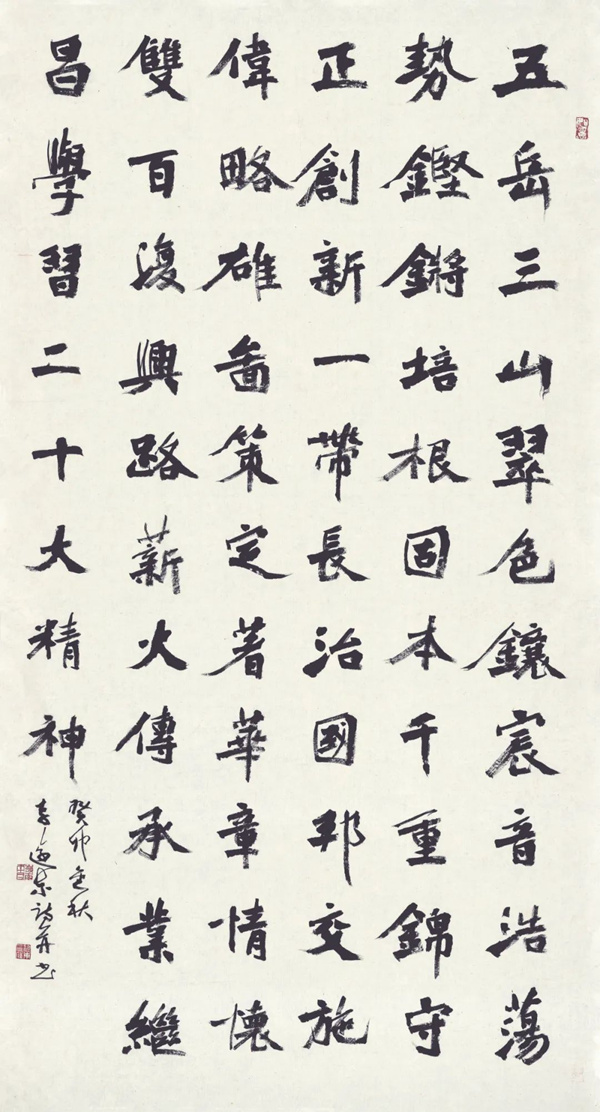 五岳三山翠色鑲宸音浩蕩
勢鏗鏘培根固本千重錦守
正創新一帶長治國邦交施
偉略雄啚策定著華章情懷
雙百復興路薪火傳承業繼
昌學習二十大精神
癸卯金秋
詩并书